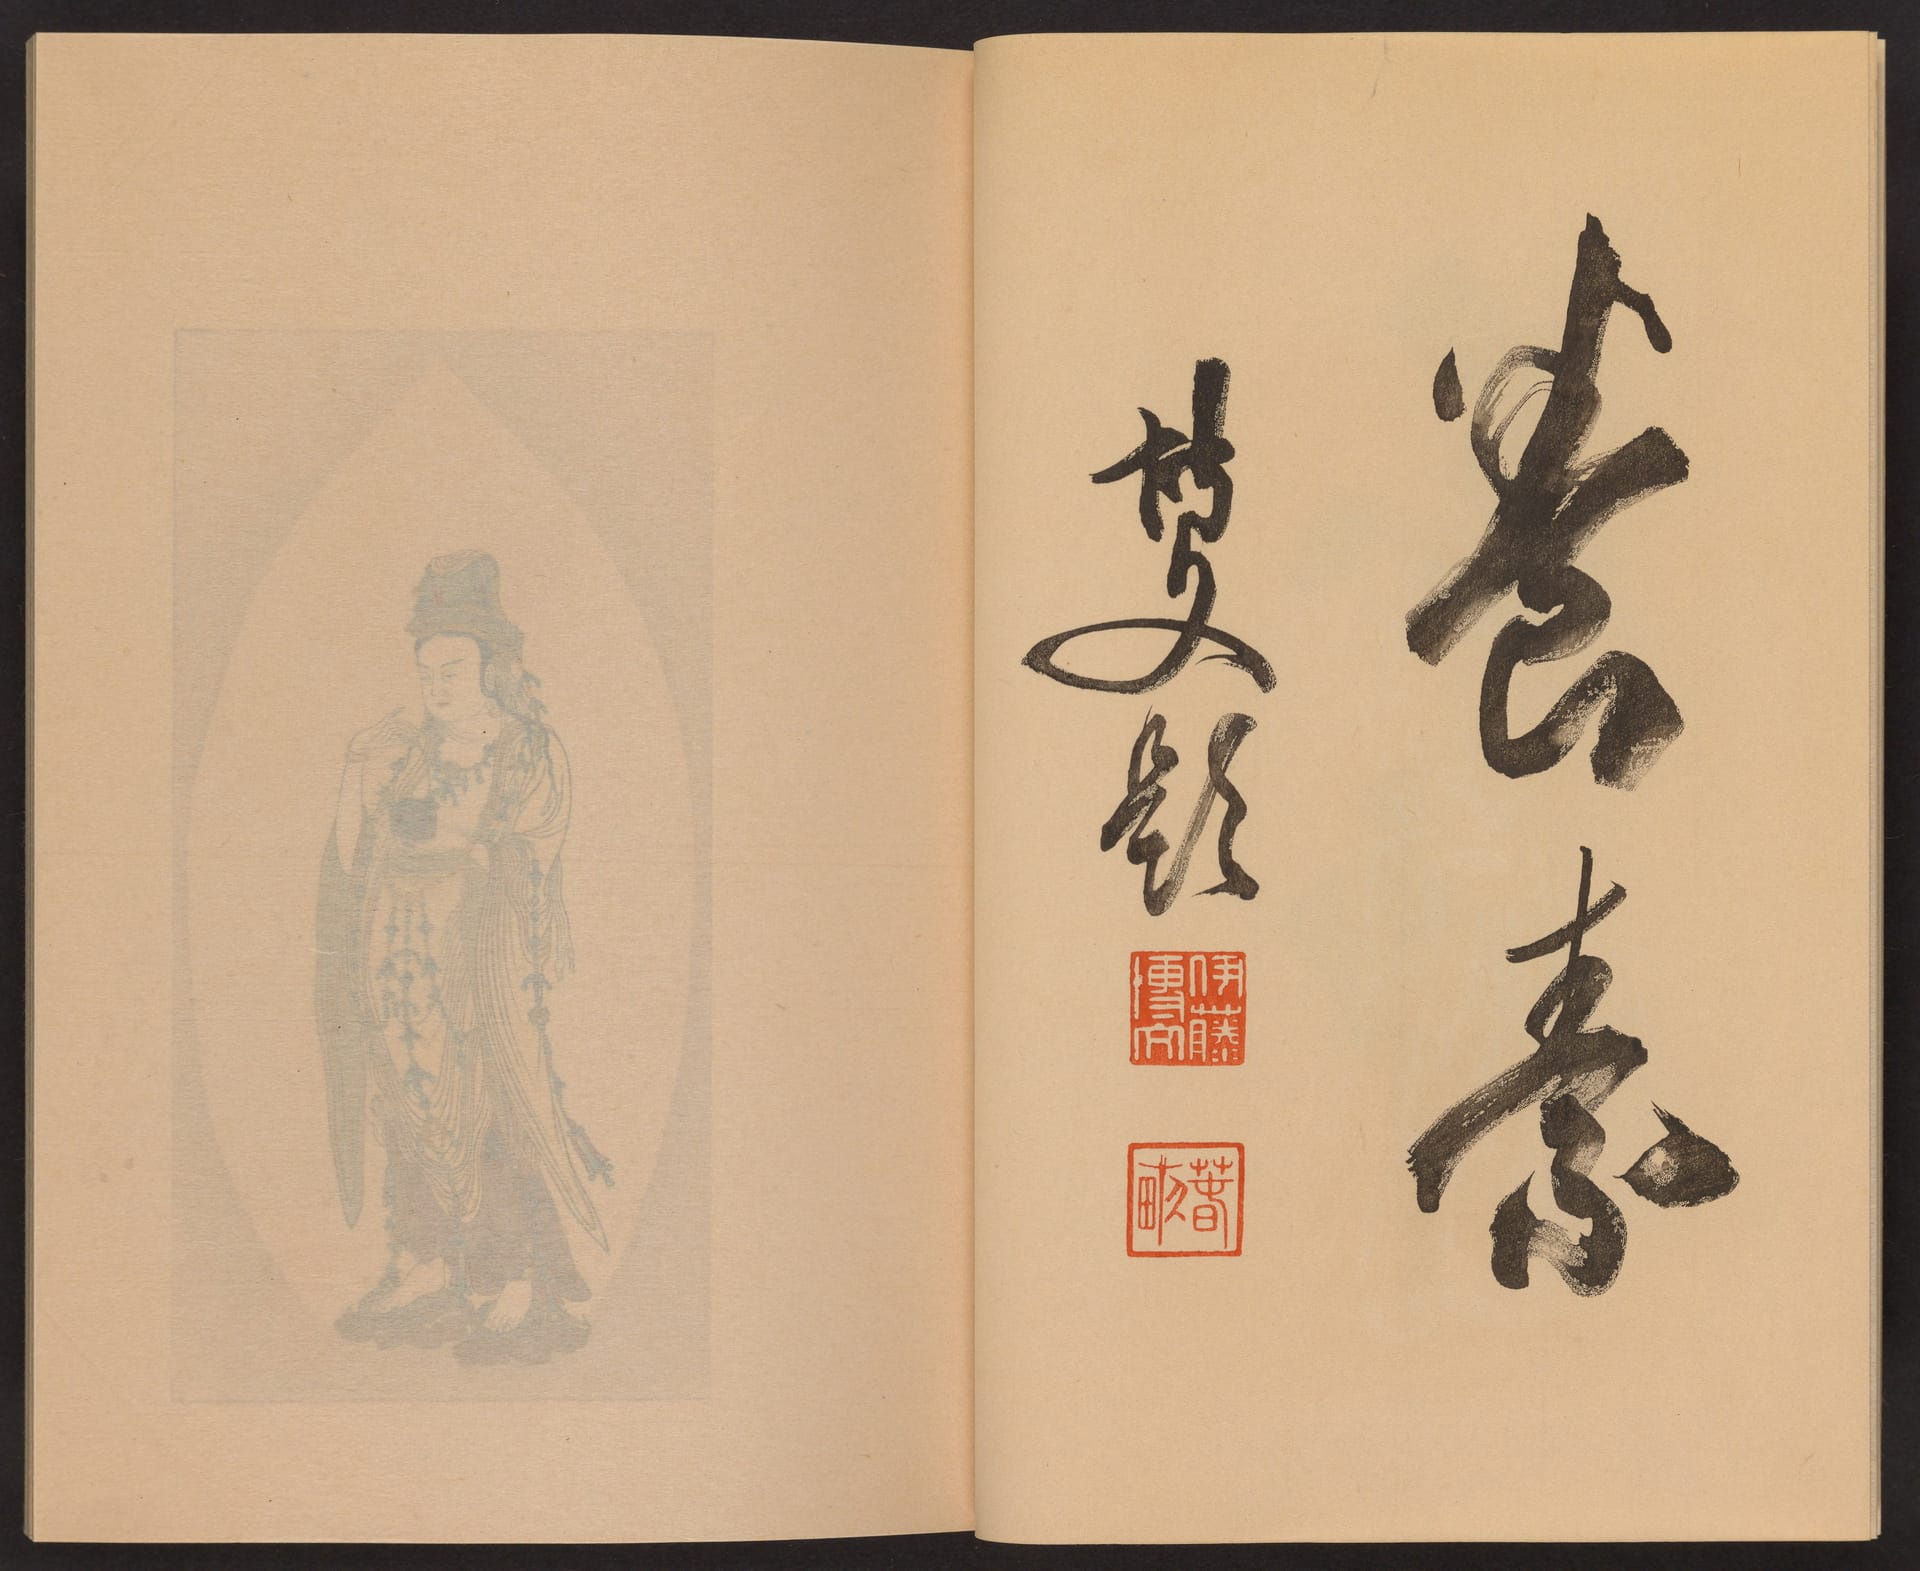 養
博文題
伊藤
博文
春
畝